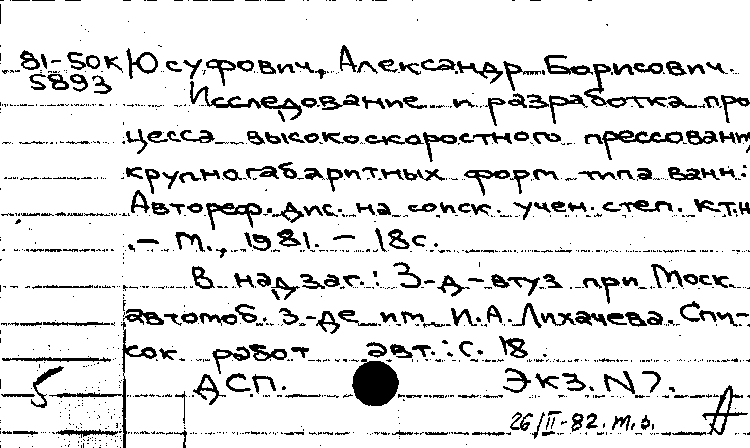 81-50к Юсуфович, Александр Борисович.
5893
Исследование и разработка про
цесса высокоскоростного прессован
крупногабаритных форм типа ванн:
Автореф. дис. на соиск. учен. степ. к.т.н
. - М., 1981. - 18с.
В надзаг.: З-д-втуз при Моск
автомоб. з-де им. И.А. Лихачева. Спи-
сок работ авт.: с. 18.
5 ДСП. Экз. N 7.
26/II-82. т.о.